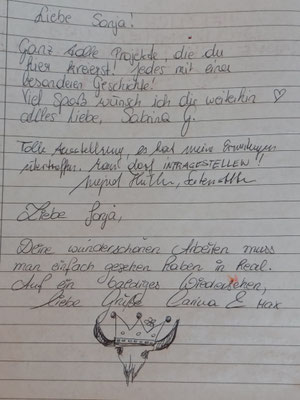 Liebe Sonja!
Ganz tolle Projekte, die du
hier kreierst! Jedes mit einer
besonderen Geschichte!
Viel Spaß wünsch ich dir weiterhin ♡
alles Liebe, Sabrina G.
Tolle Ausstellung, es hat meine Erwartungen
übertroffen. Man darf INFRAGESTELLEN!!
Liebe Sonja,
Deine wunderschönen Arbeiten muss
man einfach gesehen haben in Real.
Auf ein baldiges Wiedersehen,
liebe Grüße Carina & Max